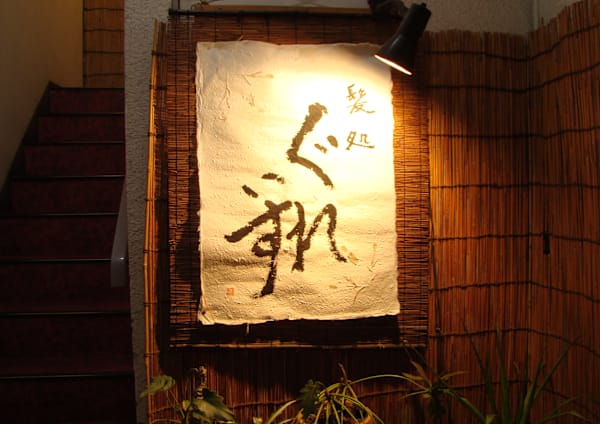 髪処
ぐれ
いす